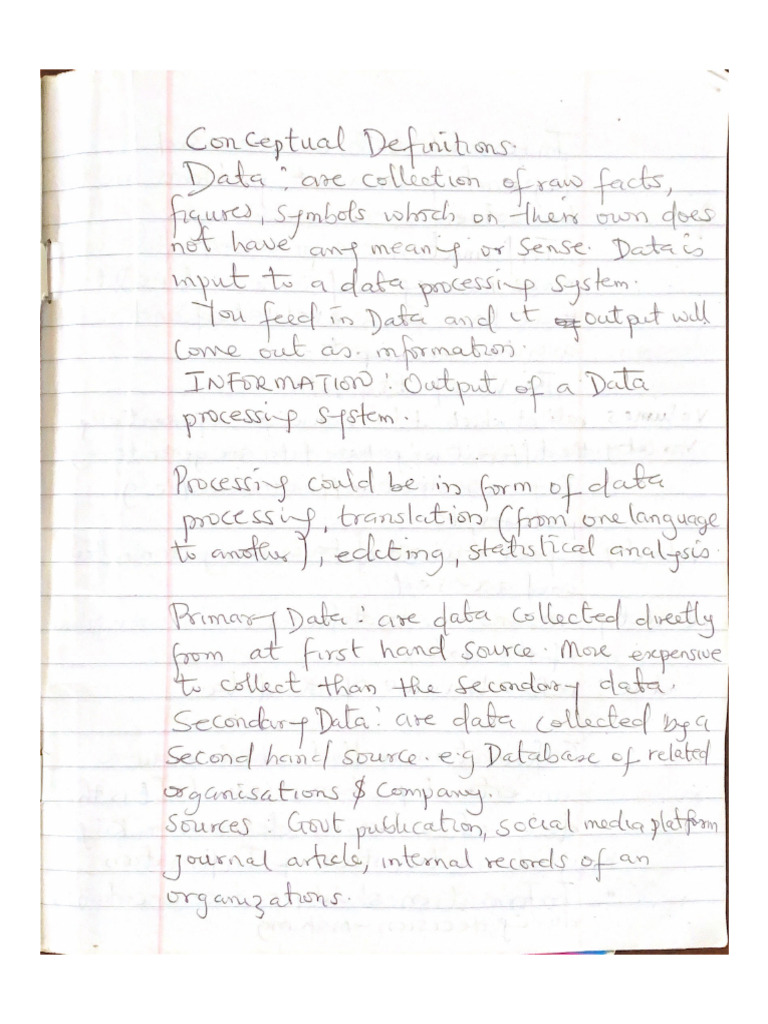 Conceptual Definitions.
Data: are collection of raw facts,
figures, symbols which on their own does
not have any meaning or sense. Data is
input to a data processing system.
You feed in Data and it output will
come out as information.
INFORMATION: Output of a Data
processing system.
Processing could be in form of data
processing, translation (from one language
to another), editing, statistical analysis.
Primary Data: are data collected directly
from at first hand source. More expensive
to collect than the secondary data.
Secondary Data: are data collected by a
second hand source. e.g Database of related
organisations & Company.
Sources: Govt publication, social media platform
journal article, internal records of an
organizations.